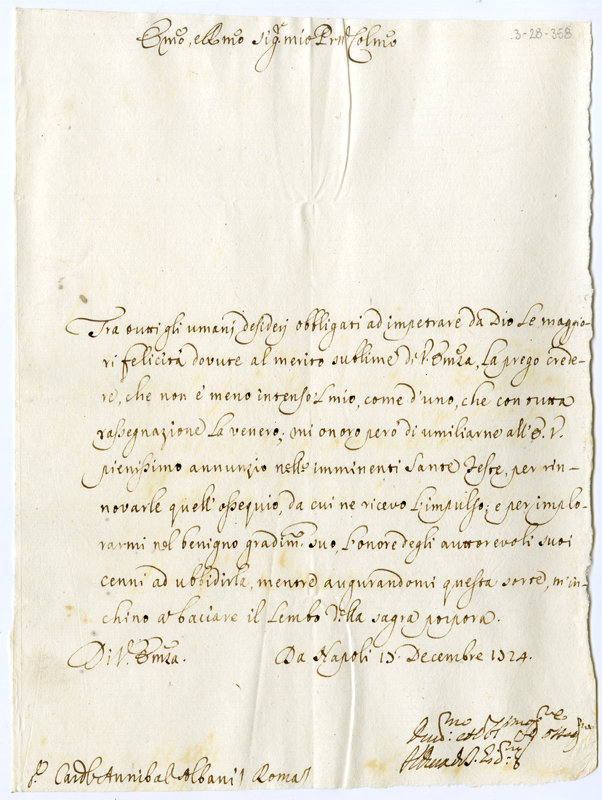 3-28-358
Em̃o, e Rm̃o Sig.r mio Pr̃n Colm̃o
Tra tutti gli umani desiderj obbligati ad impetrare da Dio Le maggio-
ri felicità dovute al merito sublime di V. Em̃za, La prego crede-
re, che non è meno intenso 'l mio, come d'uno, che con tutta
rassegnazione La venero; mi onoro però di umiliarne all'E. V.
pienissimo annunzio nelle imminenti Sante Feste, per rin-
novarle quell'ossequio, da cui ne ricevo l'impulso; e per implo-
rarmi nel benigno gradim.to suo, l'onore degli auttorevoli suoi
cenni ad ubbidirla, mentre augurandomi questa sorte, m'in-
chino a baciare il Lembo della sagra porpora.
Di V. Em̃za. Da Napoli 15 Decembre 1724.
Card. Annibal Albani Roma